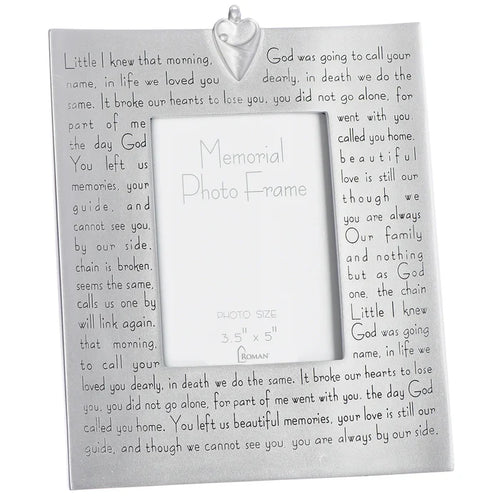 Little I knew that morning, God was going to call your
name, in life we loved you dearly, in death we do the
same. It broke our hearts to lose you, you did not go alone, for
part of me went with you
the day God called you home.
You left us beautiful
memories, your love is still our
guide, and though we
cannot see you, you are always
by our side. Our family
chain is broken, and nothing
seems the same, but as God
calls us one by one, the chain
will link again. Little I knew
that morning, God was going
to call your name, in life we
loved you dearly, in death we do the same. It broke our hearts to lose
you, you did not go alone, for part of me went with you, the day God
called you home. You left us beautiful memories, your love is still our
guide, and though we cannot see you, you are always by our side.
Memorial
Photo Frame
PHOTO SIZE
3.5" x 5"
ROMAN